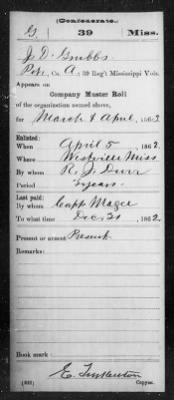 (Confederate.)
G. 39 Miss.
J. D. Grubbs
Pvt, Co. A, 39 Reg't Mississippi Vols.
Appears on
Company Muster Roll
of the organization named above,
for March & April, 1863.
Enlisted:
When April 5, 1862.
Where Westville Miss
By whom R. J. Durr
Period 3 years.
Last paid:
By whom Capt Magee
To what time Dec 31, 1862.
Present or absent Present
Remarks:
Book mark:
Copyist.